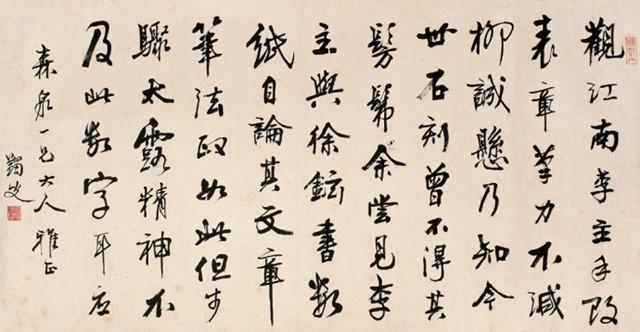 觀江南李主手改
表章筆力不減
柳誠懸乃知今
世石刻曾不得其
髣髴余嘗見李
主與徐鉉書數
紙自論其文章
筆法政如此但步
驟太露精神不
及此數字耳
森泉一兄大人雅正
蠲叟